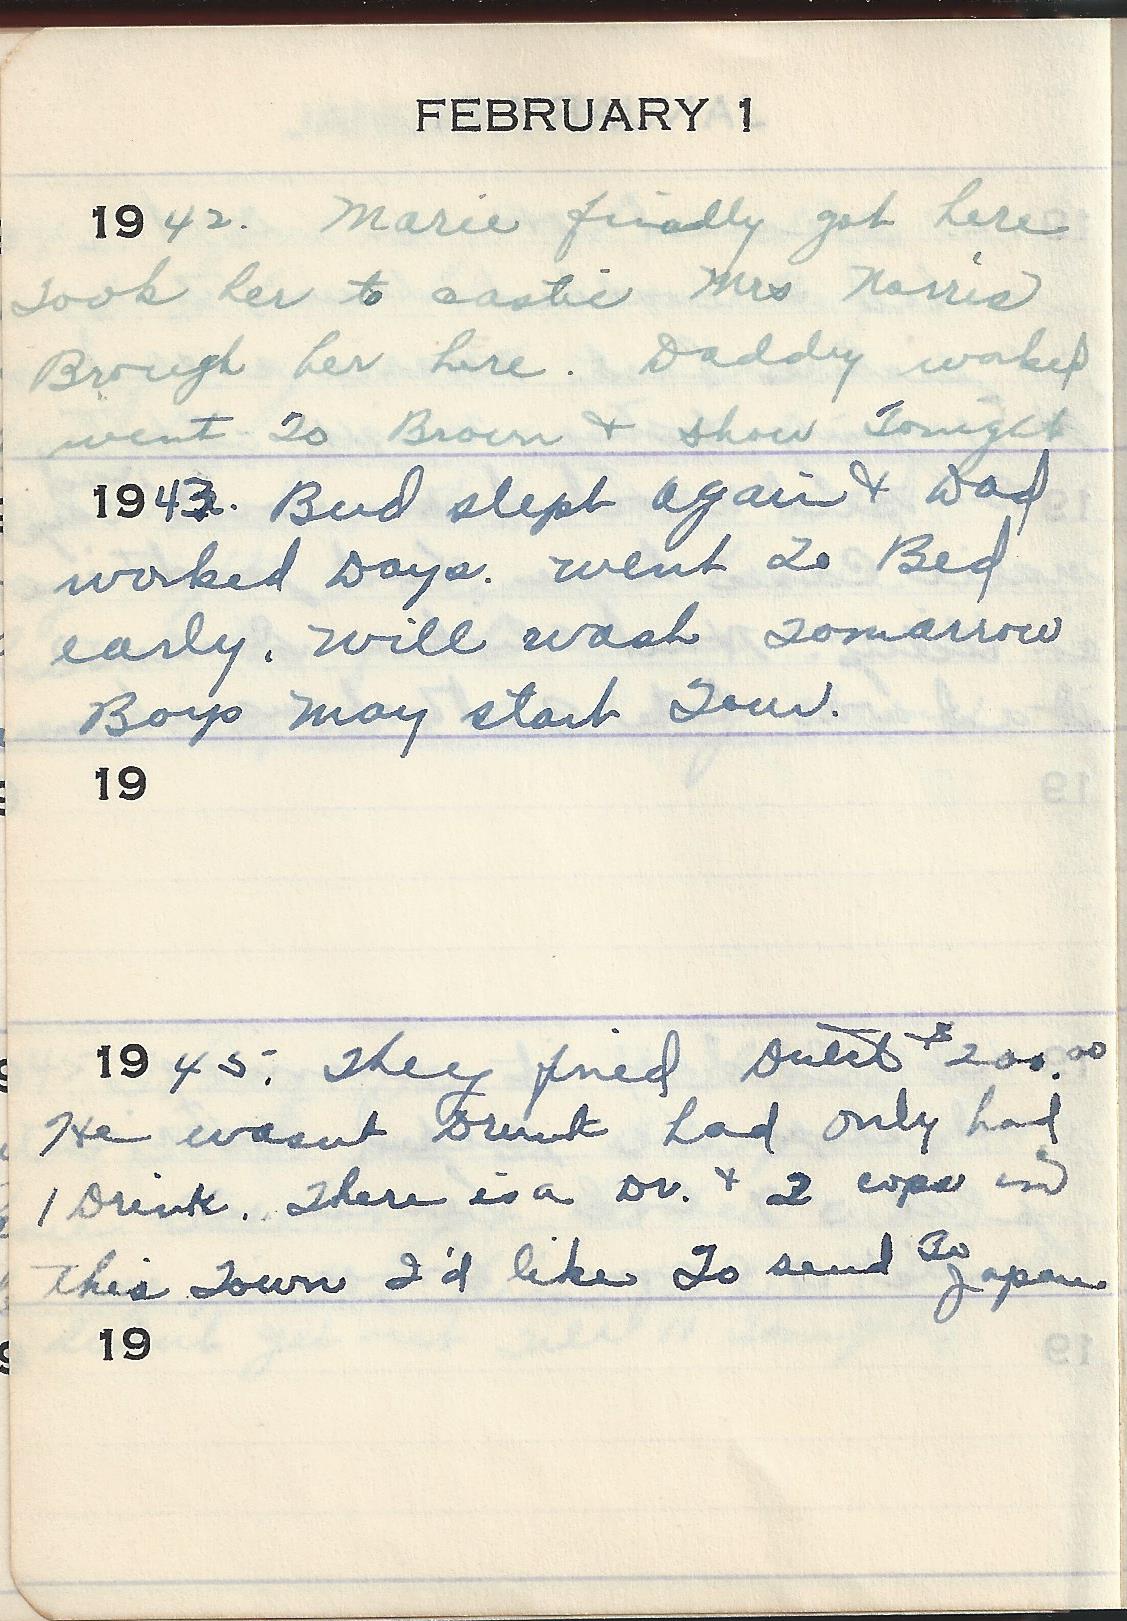 FEBRUARY 1
1942. Marie finally got here
Took her to Mrs Norris
Brough her here. Daddy worked
went To Brown & show Tonight
1943. Bud slept again & Dad
worked Days. went To Bed
early. will wash Tomarrow
Boys may start Tow.
19
1945. They fined $200.00
He wasnt Drunk had only had
1 Drink. There is a Dr. & 2 cops in
this Town I'd like To send To Japan
19